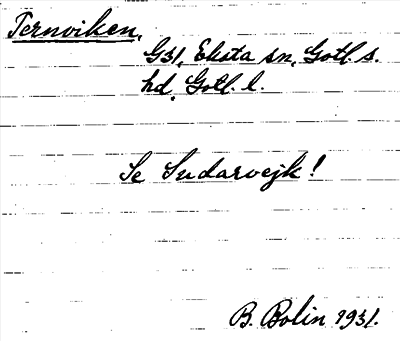 Ternviken,
G31, Eksta sn, Gotl. s.
hd, Gotl. l.
Se Sudarvejk!
B. Bolin 1931.